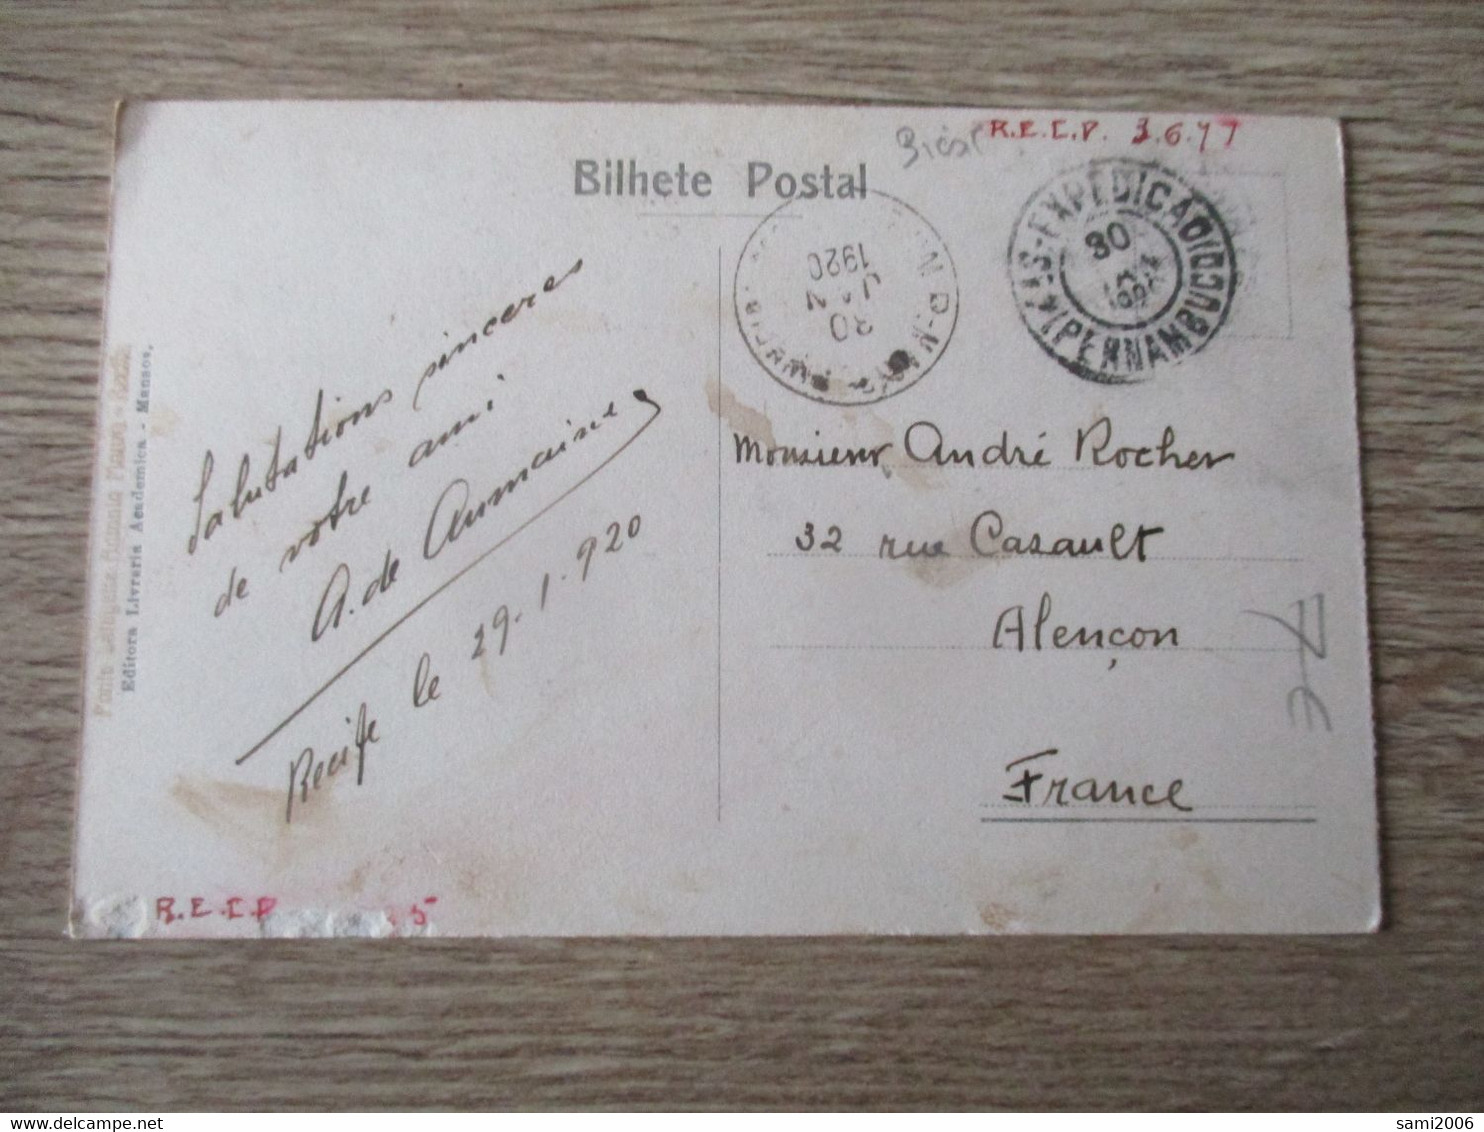 R.E.C.P. 3.6.77
Bilhete Postal
30
JAN
1920
EXPEDIÇÃO
30
PERNAMBUCO
Salutations sinceres
de votre ami
A. de Aumaine
Recife le 29.1.920
Monsieur André Rocher
32 rue Casault
Alençon
France
Editora Livraria Academica - Manaos.
R.E.C.P. 5
sami2006